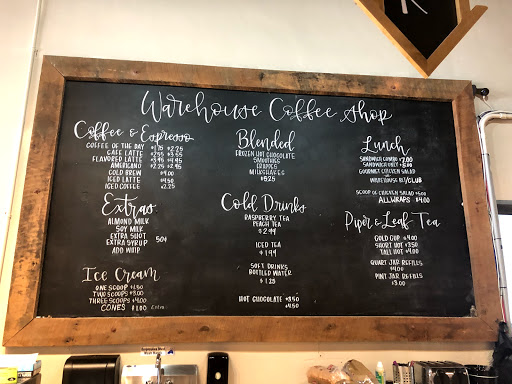 Warehouse Coffee Shop
Coffee & Espresso
COFFEE OF THE DAY $1.75 $2.25
CAFE LATTE $2.95 $3.55
FLAVORED LATTE $3.95 $4.45
AMERICANO $2.25 $2.95
COLD BREW $4.00
ICED LATTE $4.50
ICED COFFEE 2.25
Extras
ALMOND MILK
SOY MILK
EXTRA SHOT
EXTRA SYRUP 50¢
ADD WHIP
Ice Cream
ONE SCOOP $1.50
TWO SCOOPS $3.00
THREE SCOOPS $4.00
CONES $1.00 Extra
Blended
FROZEN HOT CHOCOLATE
SMOOTHIES
FRAPPES
MILKSHAKES
$5.25
Cold Drinks
RASPBERRY TEA
PEACH TEA
$2.49
ICED TEA
$1.99
SOFT DRINKS
BOTTLED WATER
$1.25
HOT CHOCOLATE $3.50
$4.50
Lunch
SANDWICH COMBO $7.00
SANDWICH ONLY $5.00
GOURMET CHICKEN SALAD
or
WAREHOUSE BLT/CLUB
SCOOP OF CHICKEN SALAD $5.00
ALL WRAPS $4.00
Piper & Leaf Tea
GOLD CUP $4.00
SHORT HOT $3.50
TALL HOT $4.00
QUART JAR REFILLS
$4.00
PINT JAR REFILLS
$3.00